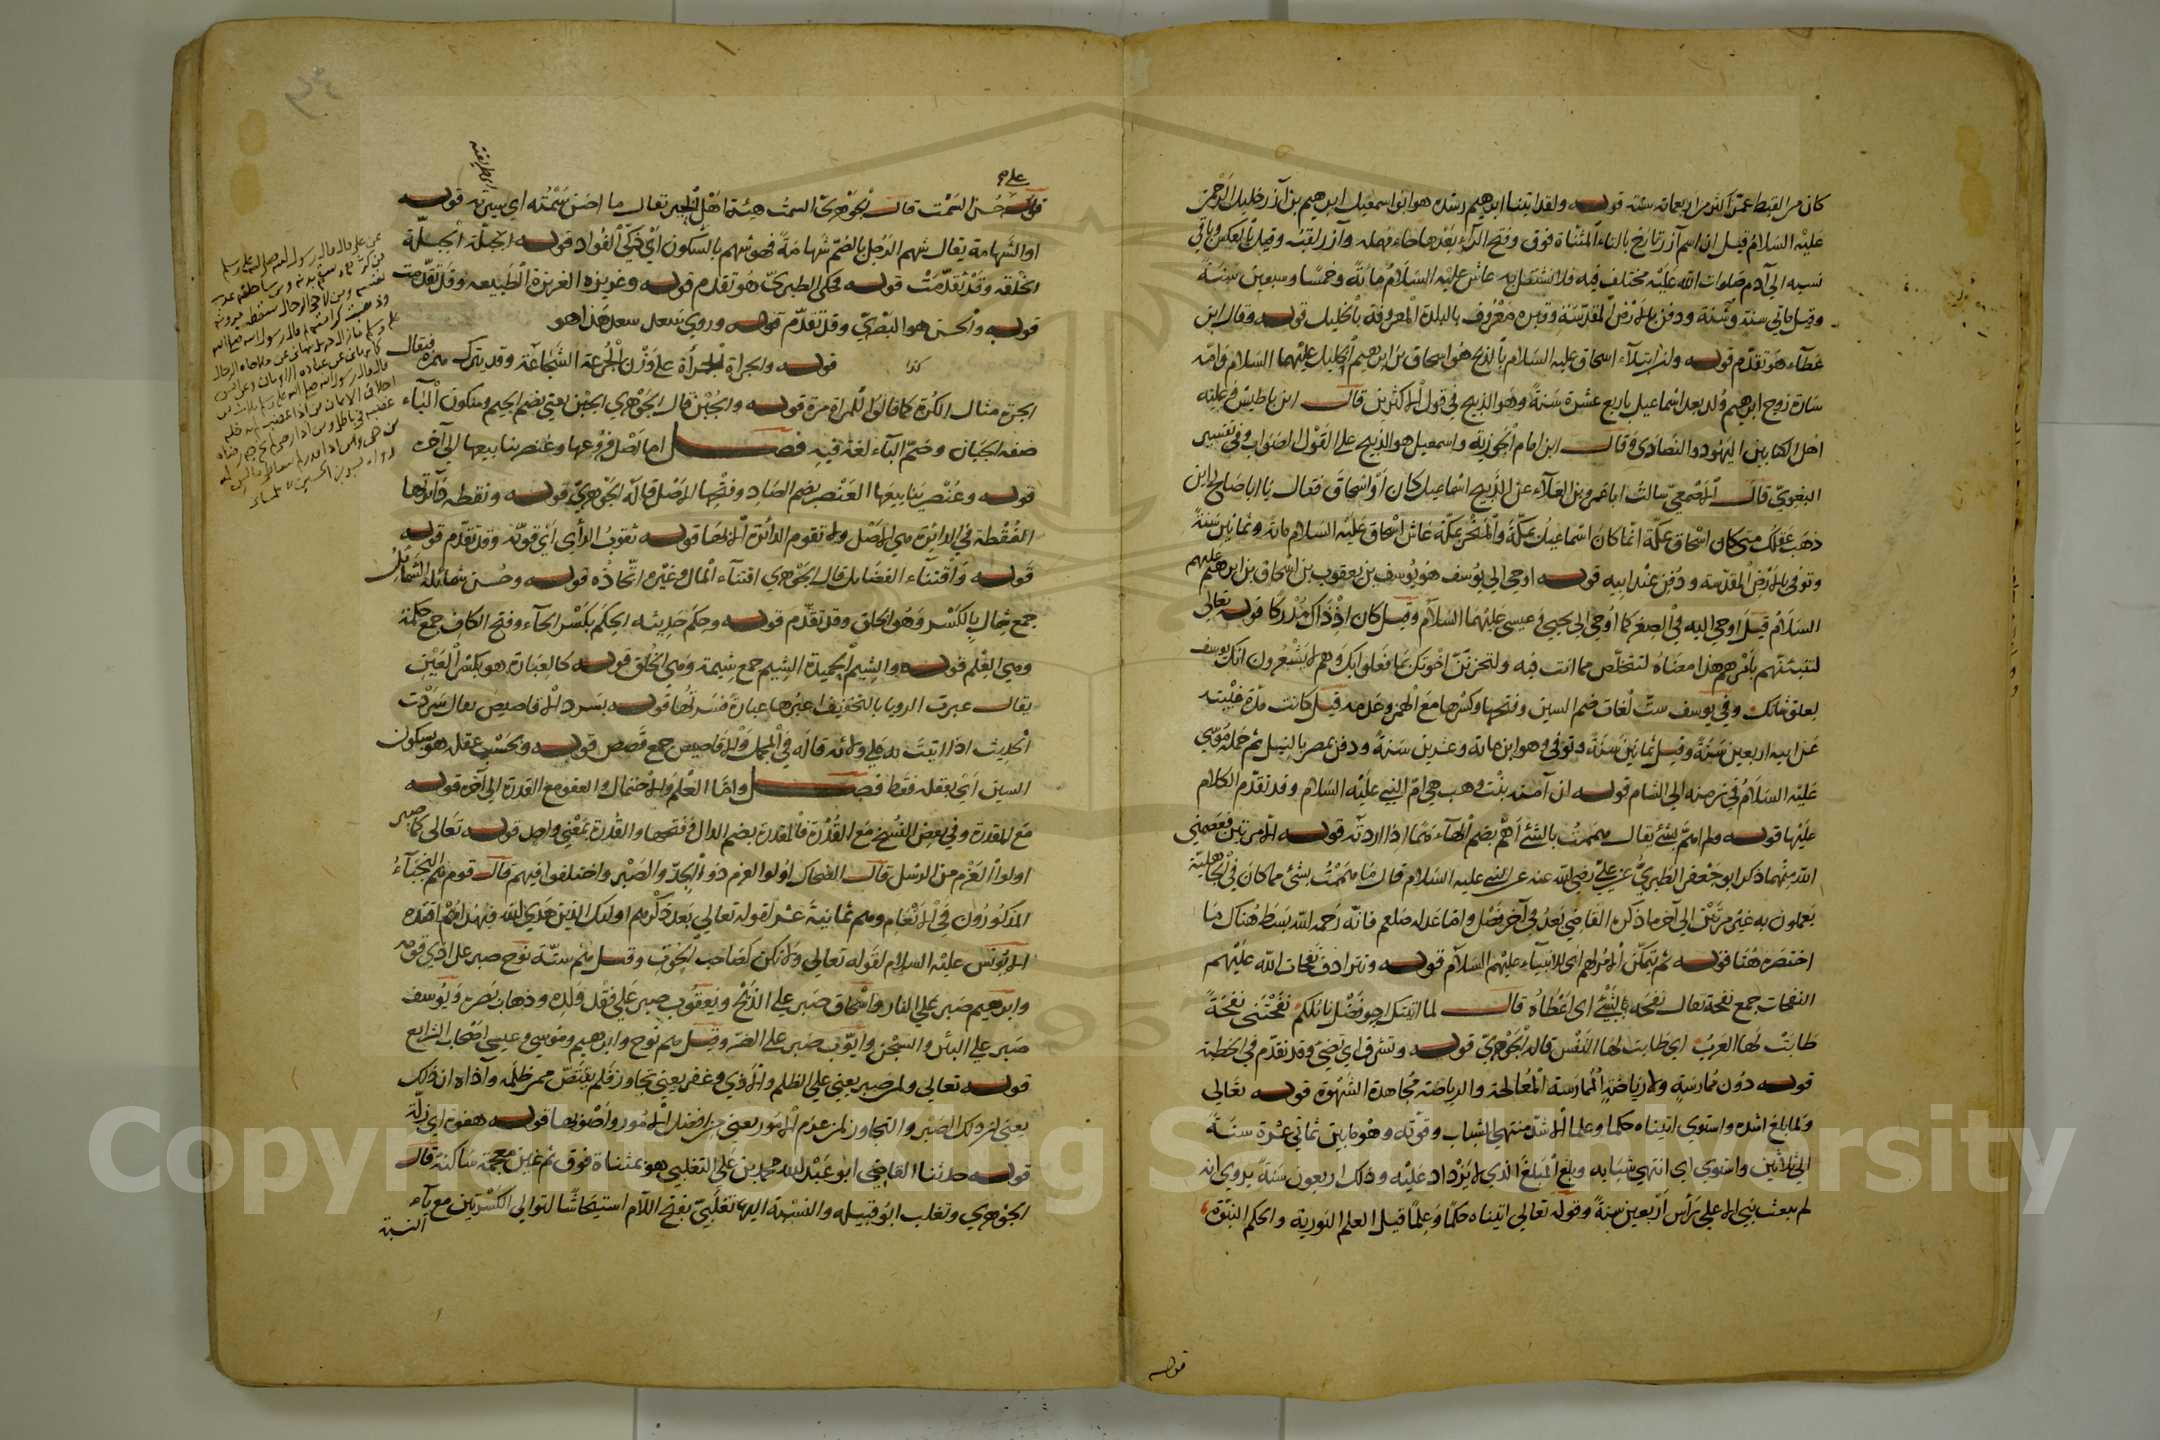 كان من القبط عمّر اكثر من اربعمائة سنة قوله ولقد اتينا ابراهيم رشده هو ابو اسمعيل ابرهيم بن آزر خليل الرحمن
عليه السلام قيل ان اسم آزر تارَح بالتاء المثناة فوق وفتح الراء بعدها حاء مهملة وآزر لقبٌ وقيل بالعكس وباقي
نسبه الى آدم صلوات الله عليه مختلف فيه فلا نشتغل به عاش عليه السلام مائة وخمسًا وسبعين سنةً
وقيل مائتي سنة ودفن بالارض المقدّسة وقبره معروف بالبلدة المعروفة بالخليل قوله وقال ابن
عطاء هو تقدّم قوله ولد ابتلاء اسحاق عليه السلام بالذبح هو اسحاق بن ابرهيم الخليل عليهما السلام وامّه
سارة زوج ابرهيم وُلد بعد اسماعيل باربع عشرة سنةً وهو الذبيح في قول الاكثرين قال ابن باطيش وعليه
اهل الكتابين اليهود والنصارى وقال ابن امام الجوزية واسمعيل هو الذبيح على القول الصواب وفي تفسير
البغوي قال الاصمعي سالتُ ابا عمرو بن العلاء عن الذبيح اسماعيل كان او اسحاق فقال يا اصمعي اين
ذهب عقلك متى كان اسحاق بمكّة انّما كان اسماعيل بمكّة والمنحر بمكّة عاش اسحاق عليه السلام مائة وثمانين سنةً
وتوفي بالارض المقدّسة ودُفن عند ابيه قوله اوحي الى يوسف هو يُوسف بن يعقوب بن اسحاق بن ابرهيم عليهم
السلام قيل اوحي اليه في الصغر كما اُوحي الى يحيى وعيسى عليهما السلام وقيل كان اذ ذاك مُدركًا قوله تعالى
لتنبئنّهم بامرهم هذا معناهُ لتتخلّص مما انت فيه ولتخبرنّ اخوتك بما فعلوا بك وهم لا يشعرون انك يوسف
لعلوّ شانك وفي يوسف ستّ لغات ضم السين وفتحها وكسرها مع الهمز وعدمه قيل كانت مدّة غيبته
عن ابيه اربعين سنةً وقيل ثمانين سنةً وتوفي وهو ابن مائة وعشرين سنةً ودفن بمصر بالنيل ثم حمله مُوسى
عليه السلامُ في زمنه الى الشام قوله ان آمنة بنت وهب هي امّ النبي عليه السلام وقد تقدّم الكلام
عليها قوله ولم اهمّ بشئ يقال هممتُ بالشئ اَهُمّ بضم الهاء هَمًّا اذا اردتّه قوله الا مرتين فعصمني
الله منهما ذكر ابو جعفر الطبريُّ عن عليّ رضي الله عنه عن النبي عليه السلام قال ما هممتُ بشئ مما كان في الجاهلية
يعملون به غير مرّتين الى آخر ما ذكره القاضي بعدُ في آخر فصل وامّا عدله صلعم فانّه رحمه الله بَسَطَ هُناك ما
اختصره هُنا قوله ثم يتمكّن الامرُ لهم اي للانبياء عليهم السلام قوله وتترادف نفحات الله عليهم
النفحات جمع نفحة يقال نفحه بالشئ اى اعطاهُ قال لما اتيتك ارجو فضل نائلكم نفحتني نفحةً
طابتْ لها العَربُ اي طابت لها النفس قاله الجوهريّ قوله وتشرق اي تضئ وقد تقدّم في الخطبة
قوله دُون مُمارسةٍ ولا رياضةٍ الممارسة المُعالجة والرياضة مُجاهدة الشهوة قوله تعالى
ولما بلغ اشده واستوى اتيناه حكما وعلما الاشدّ منتهى الشباب وقوّته وهو ما بين ثماني عشرة سنةً
الى ثلاثين واستوى اى انتهى شبابه وبلغ المبلغ الذي لا يزداد عليه وذلك اربعون سنةً يروى انه
لم يبعث نبيّ الا على رأس أربعين سنةً وقوله تعالى اتيناه حكمًا وعِلمًا قيل العلم التورية والحكم النبوّة
قوله
قوله حُسن السَّمْت قال الجوهريّ السمتُ هيئة اهل الخير يقال ما احسن سَمْتُه اي سيرته قوله
او الشّهامة يقال شهم الرّجل بالضّم شهامةً فهو شهم بالسّكون أيْ ذكيّ الفؤاد قوله الجبلّة الجبلّة
الخلقة وقد تقدّمت قوله حكى الطبريّ هُو تقدم قوله وغريزة الغريزة الطبيعة وقد تقدّمت
قوله والحسن هو البصريّ وقد تقدّم قوله وروى سعد سعد هذا هو
كذا قوله والجراة الجُرأة على وزن الجُرعة الشجاعة وقد يترك همزه فيقال
الجُرة مثال الكُرة كما قالوا للمراة مرة قوله والجُبْن قال الجوهري الجبن يعني بضم الجيم وسكون الباء
صفة الجبان وضمّ الباء لغة فيه فصل اما اصل فروعها وعنصر ينابيعها الى آخره
قوله وعنصر ينابيعها العنصر بضم الصاد وفتحها الاصل قاله الجوهريّ قوله ونقطة دائرتها
النُقطة في الدائرة هي الاصل ولا تقوم الدائرة الا بها قوله ثقوب الرأي أي قوّته وقد تقدّم قوله
قوله واقتناء الفضائل قال الجوهري اقتناء المال وغيره اتّخاذُه قوله وحُسن شمائله الشمائل
جمع شمال بالكسر وهو الخلق وقد تقدّم قوله وحِكم حديثه الحِكَم بكسر الحاء وفتح الكاف جمع حكمة
وهي العلم قوله والشيم الحميدة الشيم جمع شيمة وهي الخُلق قوله كالعبارة هو بكسر العين
يقال عبرت الرويا بالتخفيف اعبُرها عبارةً فسّرتُها قوله بسرد الاقاصيص يقال سردتُ
الحديث اذا اتيتَ به على ولائه قاله في المجمل والاقاصيص جمع قصص قوله وبحَسْب عقله هو بسكون
السين أي بعقله فقط فصل وامّا الحلم والاحتمال والعفو مع القدرة الى آخره قوله
مع المقدرة وفي بعض النّسخ مع القُدْرة فالمقدرة بضم الدال وفتحها والقدرة بمعنى واحد قوله تعالى كما صبر
اولوا العزم من الرسل قال الضحاك اُولوا العزم ذوو الجِدّ والصّبر واختلفوا فيهم قال قوم هم النجباءُ
المذكورون في الانعام وهم ثمانيةَ عشر لقوله تعالى بعد ذكرهم اولئك الذين هدى الله فبهداهُم اقتده
الا يونس عليه السلام لقوله تعالى ولا تكن كصاحب الحوت وقيل هم ستّة نوح صبر على اذى قومه
وابرهيم صبر على النار واسحاق صبر على الذبح ويعقُوب صبر على فقد ولده وذهاب بصره ويُوسف
صبر على البئر والسجن وايّوب صبر على الضّر وقيل هم نوح وابرهيم وموسى وعيسى اصحاب الشرايع
قوله تعالى ولمن صبر يعني على الظلم والاذى وغفر يعني تجاوز فلم يقتصّ ممن ظلمه وآذاه ان ذلك
يعنى ان ذلك الصبر والتجاوز لمن عزم الامور يعنى من افضل الامُور واصوبها قوله هفوة اي زلّة
قوله حدثنا القاضي ابو عبد الله محمد بن علي التغلبي هو بمثناة فوق ثم غين معجمة ساكنة قال
الجوهري وتغلب ابُو قبيلة والنسبة اليها تغلَبيّ بفتح اللام استيحاشًا لتوالي الكسرتين مع ياء
النسبة